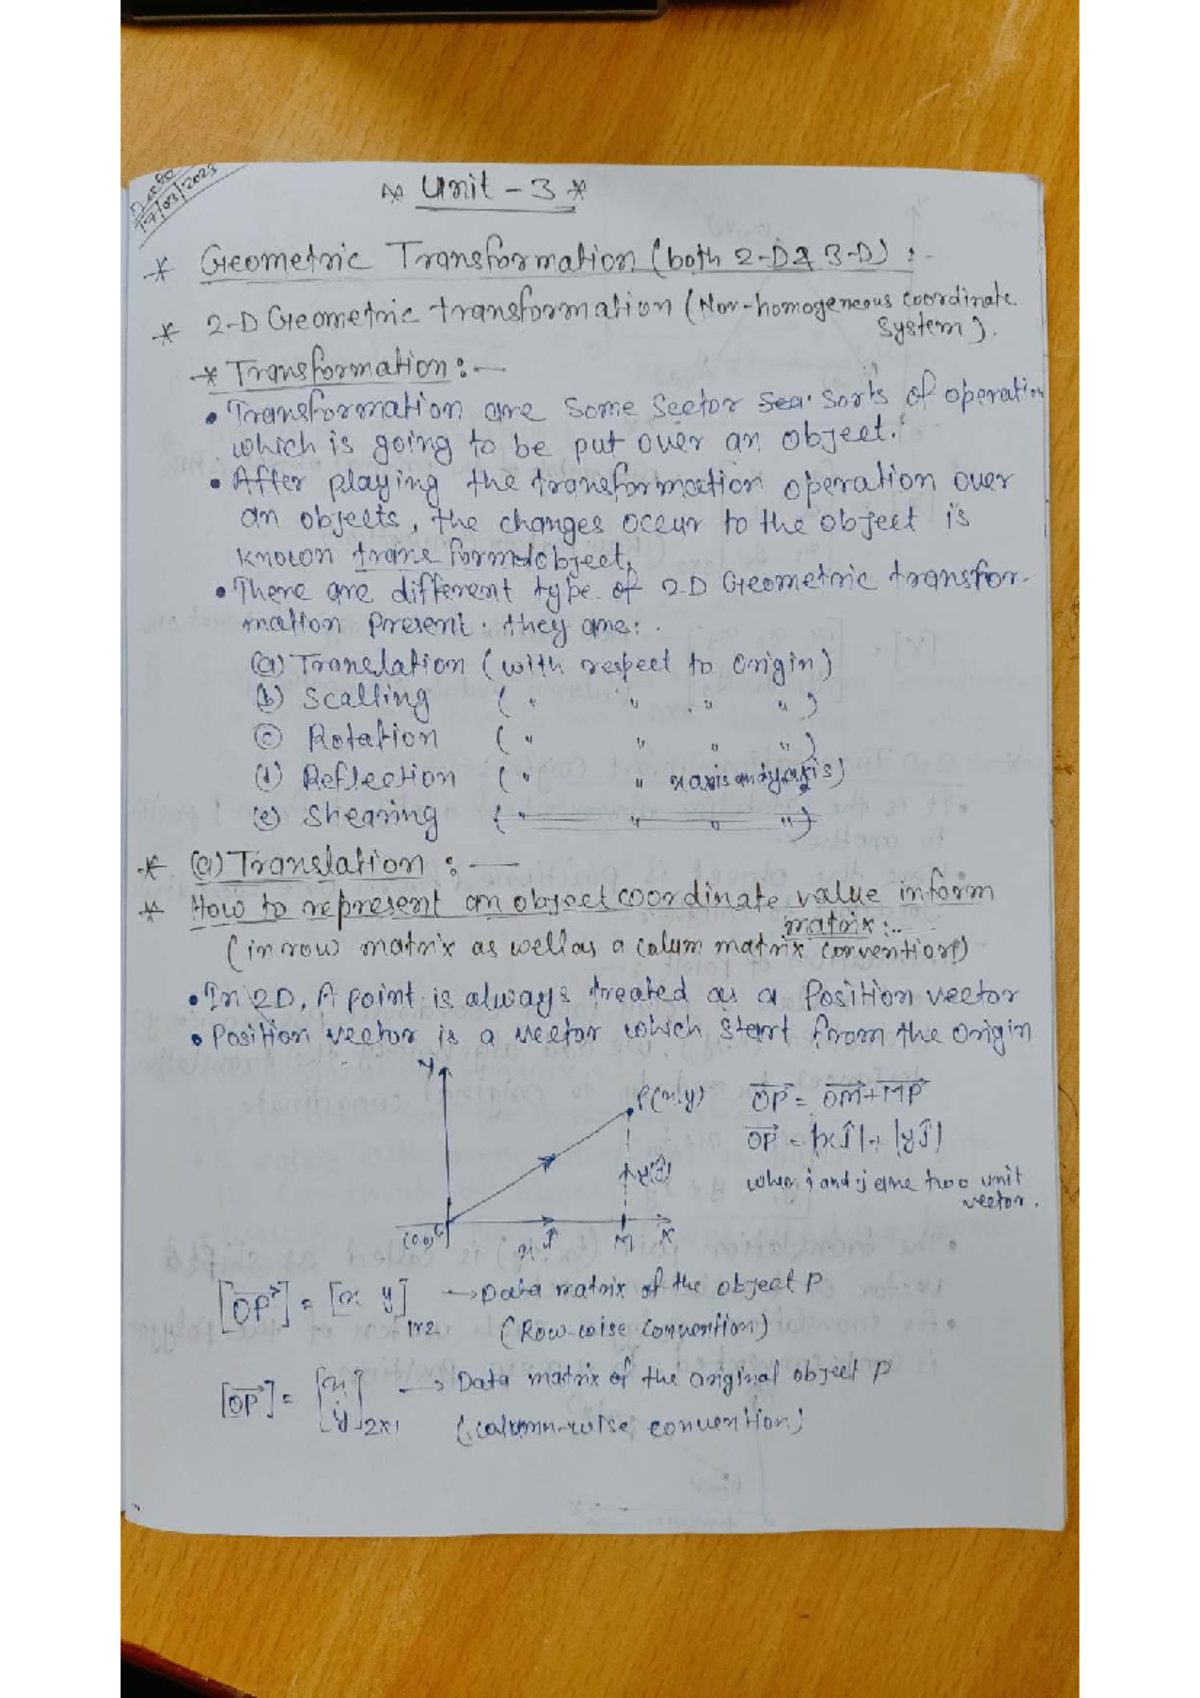 Date
17/03/2023
* Unit - 3 *
* Geometric Transformation (both 2-D & 3-D) :-
* 2-D Geometric transformation (Non-homogeneous coordinate
system).
* Transformation :-
• Transformation are some sector sorts of operation
which is going to be put over an object.
• After playing the transformation operation over
an objects, the changes occur to the object is
known transformed object.
• There are different type of 2-D Geometric transfor-
mation Present. they are:.
(a) Translation (with respect to origin)
(b) Scalling ( " " " " )
(c) Rotation ( " " " " )
(d) Reflection ( " " x axis and y axis)
(e) Shearing ( " " " " )
* (a) Translation :-
* How to represent an object coordinate value inform
matrix :-
(in row matrix as well as a colum matrix convention)
• In 2D, A point is always treated as a Position vector
• Position vector is a vector which start from the origin
y
P(x,y)
OP = OM + MP
OP = |xĵ| + |yĵ|
when i and j are two unit
vector.
(0,0)
x ĵ
M
x
[OP] = [x y]1×2 → Data matrix of the object P
(Row-wise convention)
[OP] = [x y]2×1 → Data matrix of the original object P
(column-wise convention)